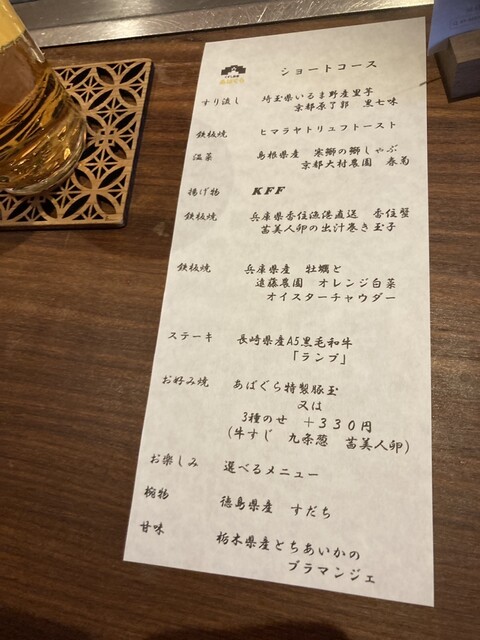 ショートコース
すり流し 埼玉県いるま野産里芋
京都原了郭 黒七味
鉄板焼 ヒマラヤトリュフトースト
温菜 島根県産 寒鰤の鰤しゃぶ
京都大村農園 春菊
揚げ物 KFF
鉄板焼 兵庫県香住漁港直送 香住蟹
茜美人卵の出汁巻き玉子
鉄板焼 兵庫県産 牡蠣と
遠藤農園 オレンジ白菜
オイスターチャウダー
ステーキ 長崎県産A5黒毛和牛
「ランプ」
お好み焼 あばぐら特製豚玉
又は
3種のせ +330円
(牛すじ 九条葱 茜美人卵)
お楽しみ 選べるメニュー
椀物 徳島県産 すだち
甘味 栃木県産とちあいかの
ブラマンジェ